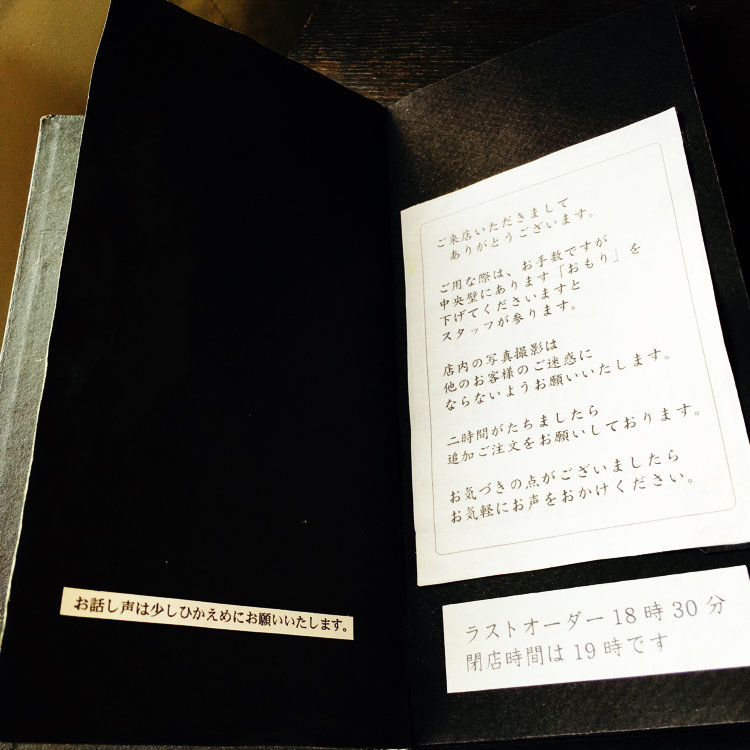 お話し声は少しひかえめにお願いいたします。
ご来店いただきまして
ありがとうございます。
ご用な際は、お手数ですが
中央壁にあります「おもり」を
下げてくださいますと
スタッフが参ります。
店内の写真撮影は
他のお客様のご迷惑に
ならないようお願いいたします。
二時間がたちましたら
追加ご注文をお願いしております。
お気づきの点がございましたら
お気軽にお声をおかけください。
ラストオーダー18時30分
閉店時間は19時です